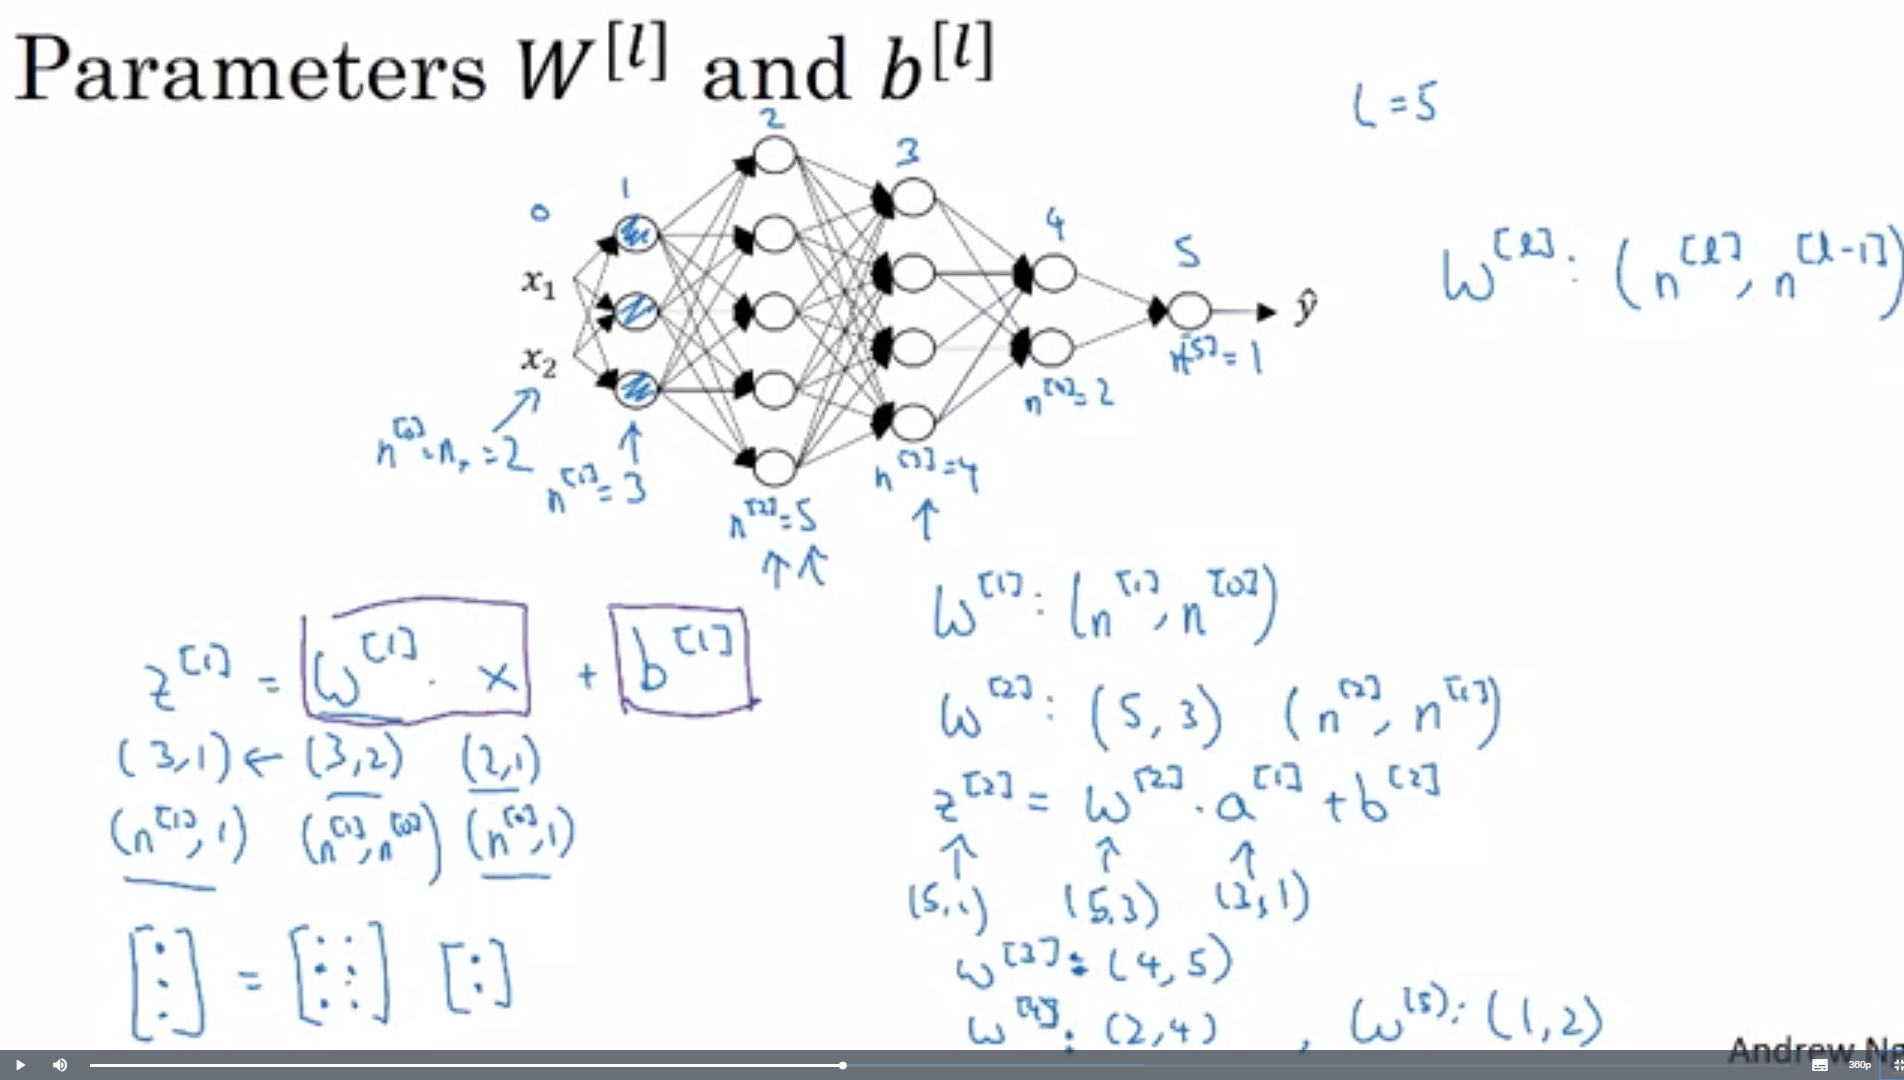 Parameters W^[l] and b^[l]
L = 5
0 1 2 3 4 5
x₁
x₂
ŷ
W^[l] : (n^[l], n^[l-1])
n^[0] = nₓ = 2
n^[1] = 3
n^[2] = 5
n^[3] = 4
n^[4] = 2
n^[5] = 1
z^[1] = W^[1] · x + b^[1]
(3,1) ← (3,2) (2,1)
(n^[1], 1) (n^[1], n^[0]) (n^[0], 1)
W^[1] : (n^[1], n^[0])
W^[2] : (5, 3) (n^[2], n^[1])
z^[2] = W^[2] · a^[1] + b^[2]
(5,1) (5,3) (3,1)
W^[3] : (4, 5)
W^[4] : (2, 4) , W^[5] : (1, 2)
Andrew Ng
360p